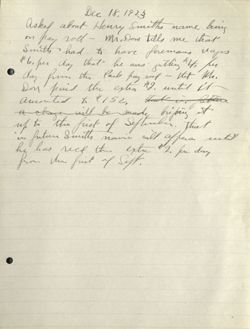 Dec 18, 1923
Asked about Henry Smiths name being
on pay roll - Mr. Dorr tells me that
Smiths had to have foremans wages
$6. per day that he was getting $4 per
day from the Park pay roll - that Mr.
Dorr paid the extra $2. until it
amounted to $152,
a above will be made
up to the first of September. That
in future Smiths name will appear until
he has recd the extra $2. per day
from the first of Sept.